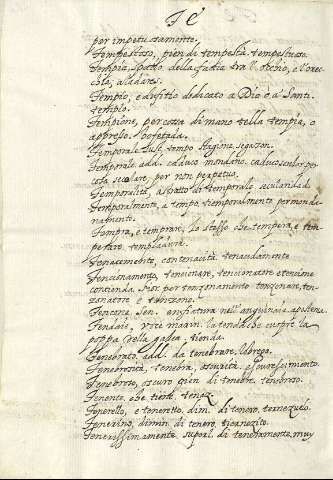 TE
per impetuosamente.
Tempestoso, pien de tempesta. tempestuoso
Tempia, spatio della facia tra l'occhio, e l'orec-
chia, aladares.
Tempio, edifitio dedicato a Dio o a Santi.
templo.
Tempione, percossa di mano nella tempia, o
appresso. bofetada.
Temporale, sust. tempo stagione, segaçon.
Temporale. add. caduco mondano. caduco seclar, per
cosa seculare, per non perpetuo.
Temporalità, astratto di temporale seculariadad
Temporalmente, a tempo temporalmente per monda-
namente.
Tempra, e temprare, lo stesso che tempera, e tem-
perare. templadura.
Tenacemente, con tenacità tenacidamente
Tencionamento, tencionare, tencionatore e tencione
contienda. per tenzonamento tenzonare, ten-
zonatore e tenzone.
Tencone, Sen. enfiatura nell'anguinaia. apostema
Tendale, voce marin. la tenda che cuopre la
poppa della galea. tienda.
Tenebrato. add. da tenebrare. lobrego.
Tenebrosità, tenebra, oscurità. escurescimiento.
Tenebroso, oscuro pien di tenebre. tenebroso.
Tenente, che tiene. tenaz
Tenerello, e teneretto, dim. di tenero, ternezuelo.
Tenerino, dimin. di tenero, tiernezito.
Tenerissimamente, superl. di teneramente, muy